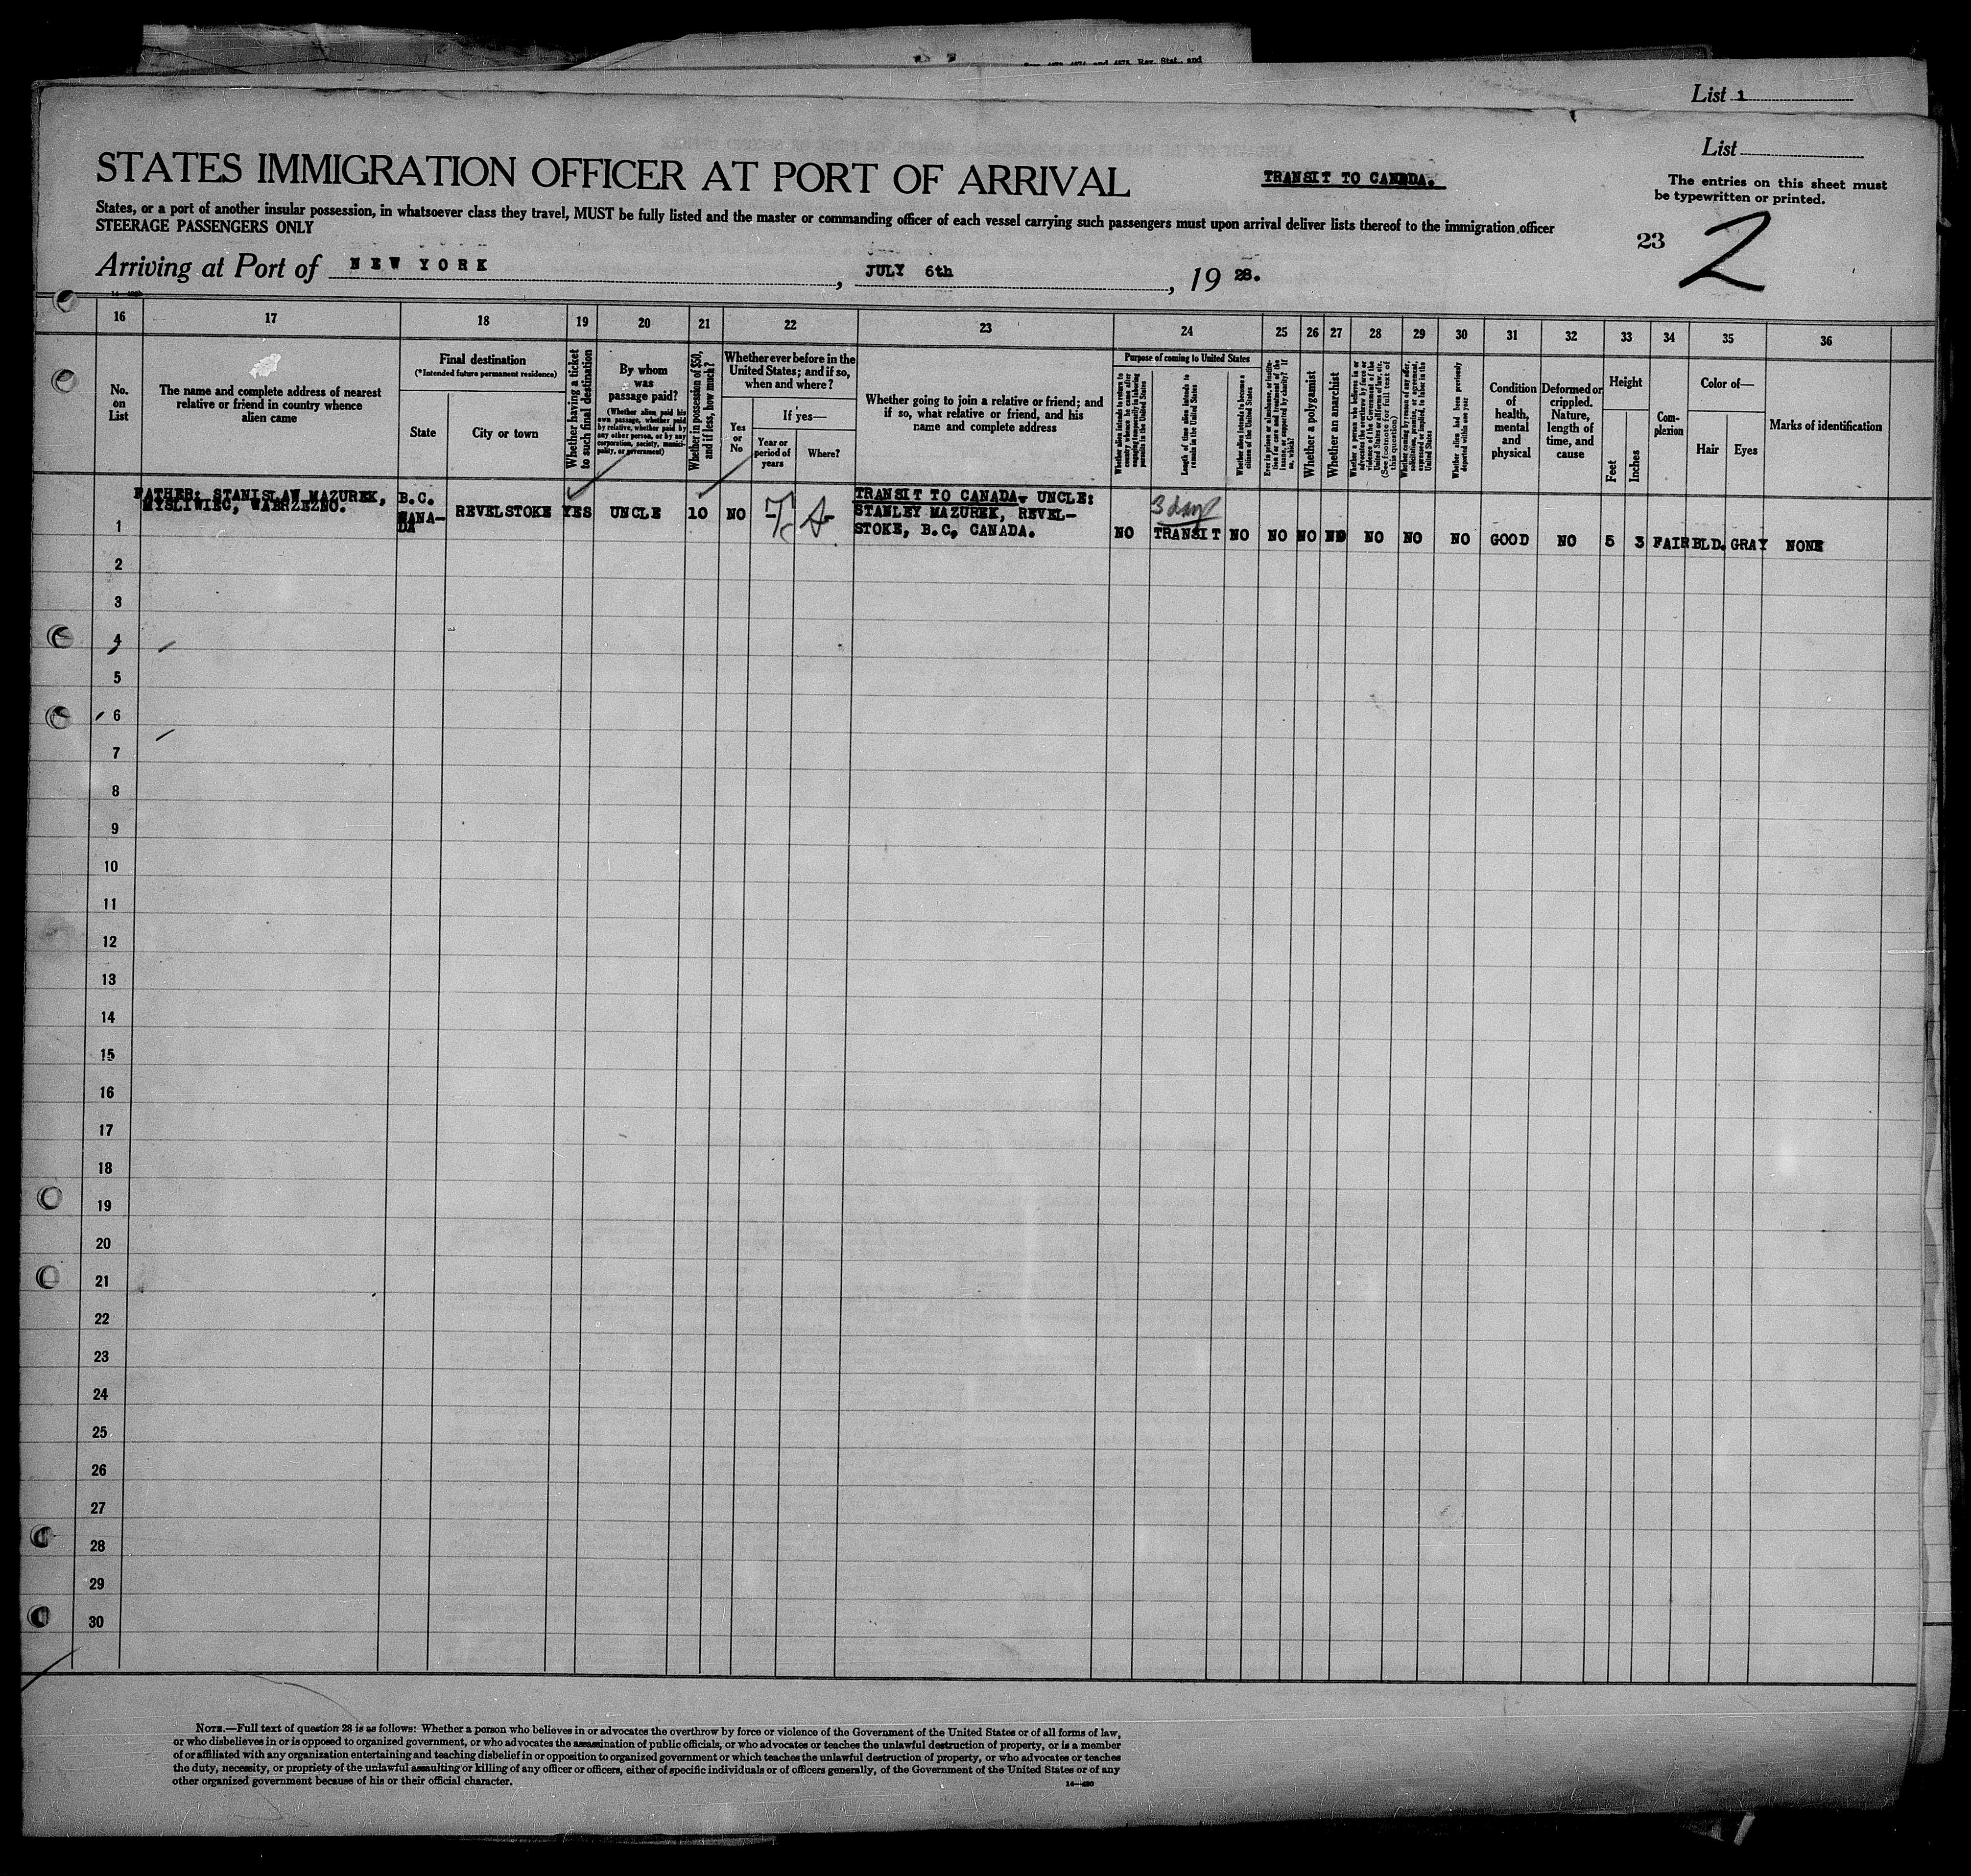 Sec. 4873, 4874, and 4875, Rev. Stat., and
List 1
List
STATES IMMIGRATION OFFICER AT PORT OF ARRIVAL
TRANSIT TO CANADA.
The entries on this sheet must
be typewritten or printed.
States, or a port of another insular possession, in whatsoever class they travel, MUST be fully listed and the master or commanding officer of each vessel carrying such passengers must upon arrival deliver lists thereof to the immigration officer
STEERAGE PASSENGERS ONLY
23
2
Arriving at Port of NEW YORK, JULY 6th, 1928.
16 17 18 19 20 21 22 23 24 25 26 27 28 29 30 31 32 33 34 35 36
No.
on
List
The name and complete address of nearest
relative or friend in country whence
alien came
Final destination
(*Intended future permanent residence)
State
City or town
Whether having a ticket
to such final destination
By whom
was
passage paid?
(Whether alien paid his
own passage, whether paid
by relative, whether paid by
any other person, or by any
corporation, society, munici-
pality, or government)
Whether in possession of $50,
and if less, how much?
Whether ever before in the
United States; and if so,
when and where?
Yes
or
No
If yes—
Year or
period of
years
Where?
Whether going to join a relative or friend; and
if so, what relative or friend, and his
name and complete address
Purpose of coming to United States
Whether alien intends to return to
country whence he came after
engaging temporarily in laboring
pursuits in the United States
Length of time alien intends to
remain in the United States
Whether alien intends to become a
citizen of the United States
Ever in prison or almshouse, or institu-
tion for care and treatment of the
insane, or supported by charity? If
so, which?
Whether a polygamist
Whether an anarchist
Whether a person who believes in or
advocates the overthrow by force or
violence of the Government of the
United States or all forms of law, etc.
(See footnote for full text of
this question)
Whether coming by reason of any offer,
solicitation, promise, or agreement,
expressed or implied, to labor in the
United States
Whether alien had been previously
deported within one year
Condition
of
health,
mental
and
physical
Deformed or
crippled.
Nature,
length of
time, and
cause
Height
Feet
Inches
Com-
plexion
Color of—
Hair
Eyes
Marks of identification
1
FATHER: STANISLAW MAZUREK,
MYSLIWIEC, WABRZEZNO.
B.C.
CANA-
DA
REVELSTOKE
YES
UNCLE
10
NO
TRANSIT TO CANADA. UNCLE:
STANLEY MAZUREK, REVEL-
STOKE, B.C, CANADA.
NO
3 days
TRANSIT
NO
NO
NO
NO
NO
NO
NO
GOOD
NO
5
3
FAIR
BLD.
GRAY
NONE
2
3
4
5
6
7
8
9
10
11
12
13
14
15
16
17
18
19
20
21
22
23
24
25
26
27
28
29
30
NOTE.—Full text of question 28 is as follows: Whether a person who believes in or advocates the overthrow by force or violence of the Government of the United States or of all forms of law,
or who disbelieves in or is opposed to organized government, or who advocates the assassination of public officials, or who advocates or teaches the unlawful destruction of property, or is a member
of or affiliated with any organization entertaining and teaching disbelief in or opposition to organized government or which teaches the unlawful destruction of property, or who advocates or teaches
the duty, necessity, or propriety of the unlawful assaulting or killing of any officer or officers, either of specific individuals or of officers generally, of the Government of the United States or of any
other organized government because of his or their official character.
14—430